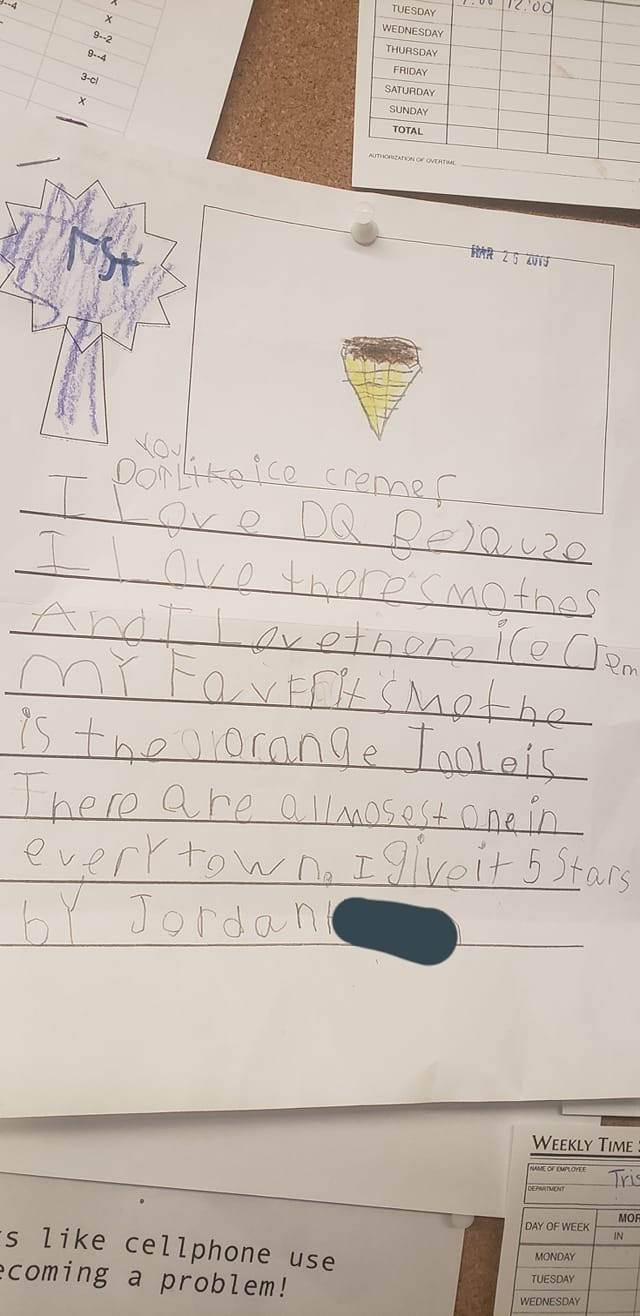 X
9--2
9--4
3-cl
X
TUESDAY
WEDNESDAY
THURSDAY
FRIDAY
SATURDAY
SUNDAY
TOTAL
12:00
AUTHORIZATION OF OVERTIME
1st
MAR 26 2019
You
Don Like ice cremes
I Love DQ Becauze
I Love there smothes
And I Love there ice Crem
MY FavFrit smothe
is the orange Jooleis
There are allmosest one in
everY town. I give it 5 Stars
bY Jordan
WEEKLY TIME
NAME OF EMPLOYEE
Tris
DEPARTMENT
DAY OF WEEK
MOR
IN
MONDAY
TUESDAY
WEDNESDAY
s like cellphone use
ecoming a problem!